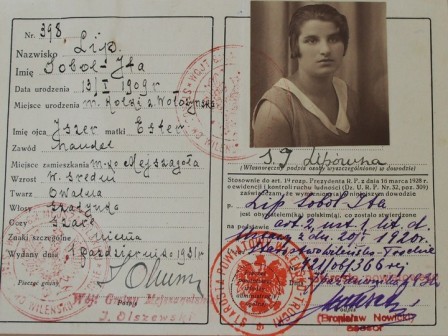 Nr. 398.
Nazwisko Lip
Imię Sobol-Ita
Data urodzenia 13/I 1909 r
Miejsce urodzenia m.
Imię ojca Iszer matki Ester
Zawód handel
Miejsce zamieszkania m-ko Mejszagoła
Wzrost w. średni
Twarz Owalna
Włosy Szatynka
Oczy Szare
Znaki szczególne niema
Wydany dnia Październik 1931 r
Pieczęć gminy
Wójt Gminy Mejszagolskiej
J. Olszewski
S. I. Lipówna
(Własnoręczny podpis osoby wyszczególnionej w dowodzie)
Stosownie do art. 19 rozp. Prezydenta R. P. z 16 marca 1928 r.
o ewidencji i kontroli ruchu ludności (Dz. U. R. P. Nr. 32, poz. 309)
zaświadczam, że wymieniony w niniejszym dowodzie
Lip Sobol Ita
jest obywatelem polskim, co zostało stwierdzone
na podstawie art. 2 ust. 1 lit. d
ustawy z dn. 20/I 1920 r.
Starostwo Wileńsko-Trockie
(Bronisław Nowicki)
Asesor